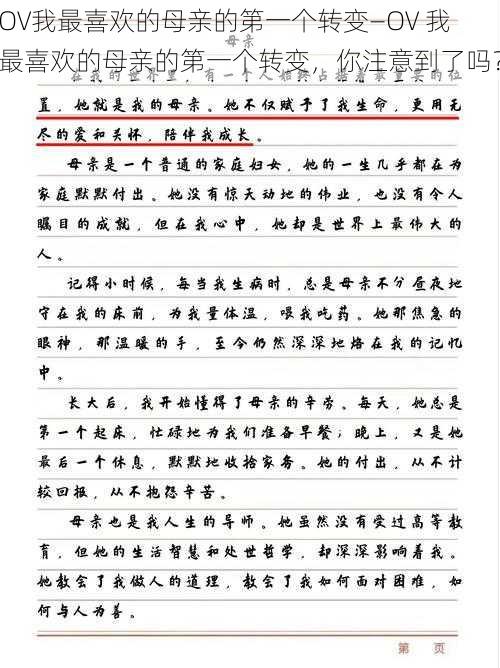 OV我最喜欢的母亲的第一个转变—OV 我
最喜欢的母亲的第一个转变，你注意到了吗？
母亲
在我的世界里，有一个人始终占据着最重要的位
置，她就是我的母亲。她不仅赋予了我生命，更用无
尽的爱和关怀，陪伴我成长。
母亲是一个普通的家庭妇女，她的一生几乎都在为
家庭默默付出。她没有惊天动地的伟业，也没有令人
瞩目的成就，但在我心中，她却是世界上最伟大的
人。
记得小时候，每当我生病时，总是母亲不分昼夜地
守在我的床前，为我量体温，喂我吃药。她那焦急的
眼神，那温暖的手，至今仍然深深地烙在我的记忆
中。
长大后，我开始懂得了母亲的辛劳。每天，她总是
第一个起床，忙碌地为我们准备早餐；晚上，又是她
最后一个休息，默默地收拾家务。她的付出，从不计
较回报，从不抱怨辛苦。
母亲也是我人生的导师。她虽然没有受过高等教
育，但她的生活智慧和处世哲学，却深深影响着我。
她教会了我做人的道理，教会了我如何面对困难，如
何与人为善。
第 页